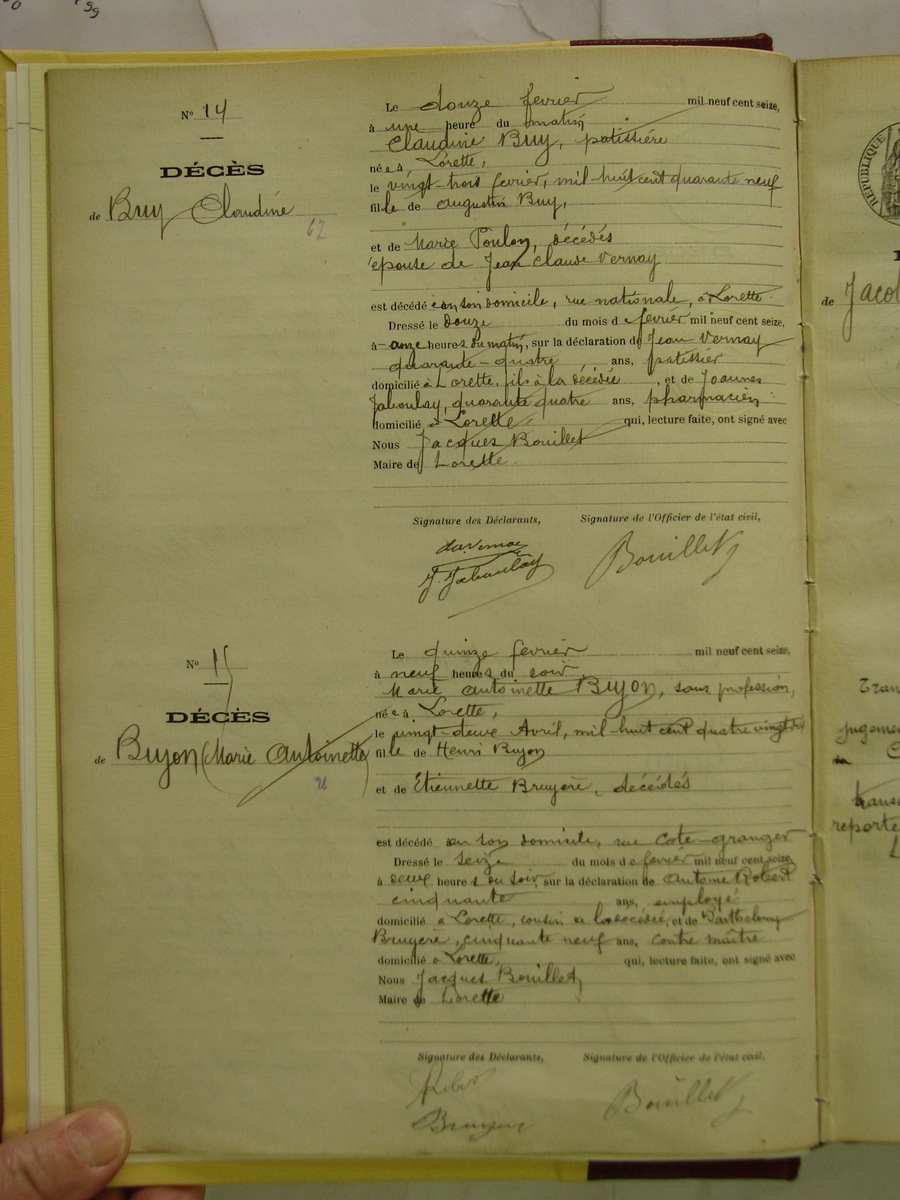 N° 14
DÉCÈS
de Buy Claudine
67
Le douze fevrier mil neuf cent seize,
à une heure du matin
Claudine Buy, patissière
née à Lorette,
le vingt-trois fevrier, mil-huit cent quarante neuf
fille de augustin Buy,
et de Marie Poulon, décédés
épouse de Jean Claude Vernay
est décédé en son domicile, rue nationale, à Lorette
Dressé le douze du mois de fevrier mil neuf cent seize,
à onze heures du matin, sur la déclaration de Jean Vernay
quarante-quatre ans, patissier
domicilié à Lorette, fils à la décédée, et de Joannes
Jaboulay, quarante quatre ans, pharmacien
domicilié à Lorette qui, lecture faite, ont signé avec
Nous Jacques Bouillet
Maire de Lorette
Signature des Déclarants, Signature de l'Officier de l'état civil,
J. Jaboulay Bouillet
N° 15
DÉCÈS
de Buyon (Marie Antoinette)
Le quinze fevrier mil neuf cent seize,
à neuf heures du soir
Marie antoinette Buyon, sans profession,
née à Lorette,
le vingt-deux Avril, mil-huit cent quatre vingt dix
fille de Henri Buyon
et de Etiennette Bruyere, décédés
est décédé en son domicile, rue cote-granger
Dressé le seize du mois de fevrier mil neuf cent seize,
à deux heures du soir, sur la déclaration de Antoine Robert
cinquante ans, employé
domicilié à Lorette, cousin de la décédée, et de Barthelemy
Bruyere, cinquante neuf ans, contre maître
domicilié à Lorette, qui, lecture faite, ont signé avec
Nous Jacques Bouillet,
Maire de Lorette
Signature des Déclarants, Signature de l'Officier de l'état civil,
Robert Bouillet
Bruyere
RÉPUBLIQUE
de Jacob
jugeme
reporte